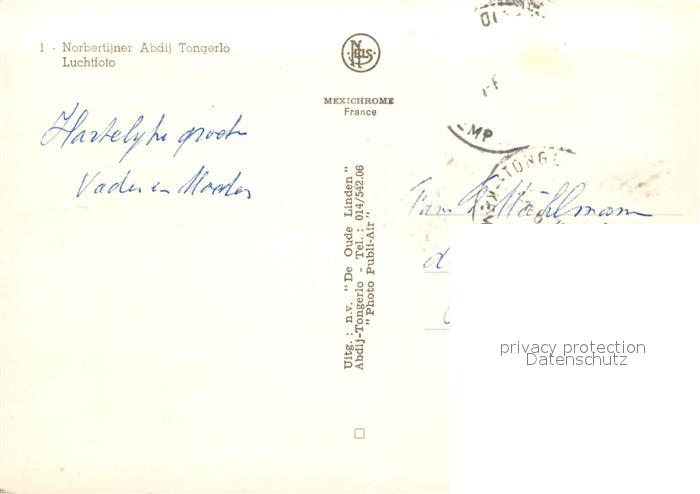 1 - Norbertijner Abdij Tongerlo
Luchtfoto
NELS
MEXICHROME
France
Hartelijke groeten
Vader en Moeder
Uitg. : n.v. "De Oude Linden"
Abdij-Tongerlo - Tel. : 014/542.06
"Photo Publi-Air"
TONGE
Fam
privacy protection
Datenschutz